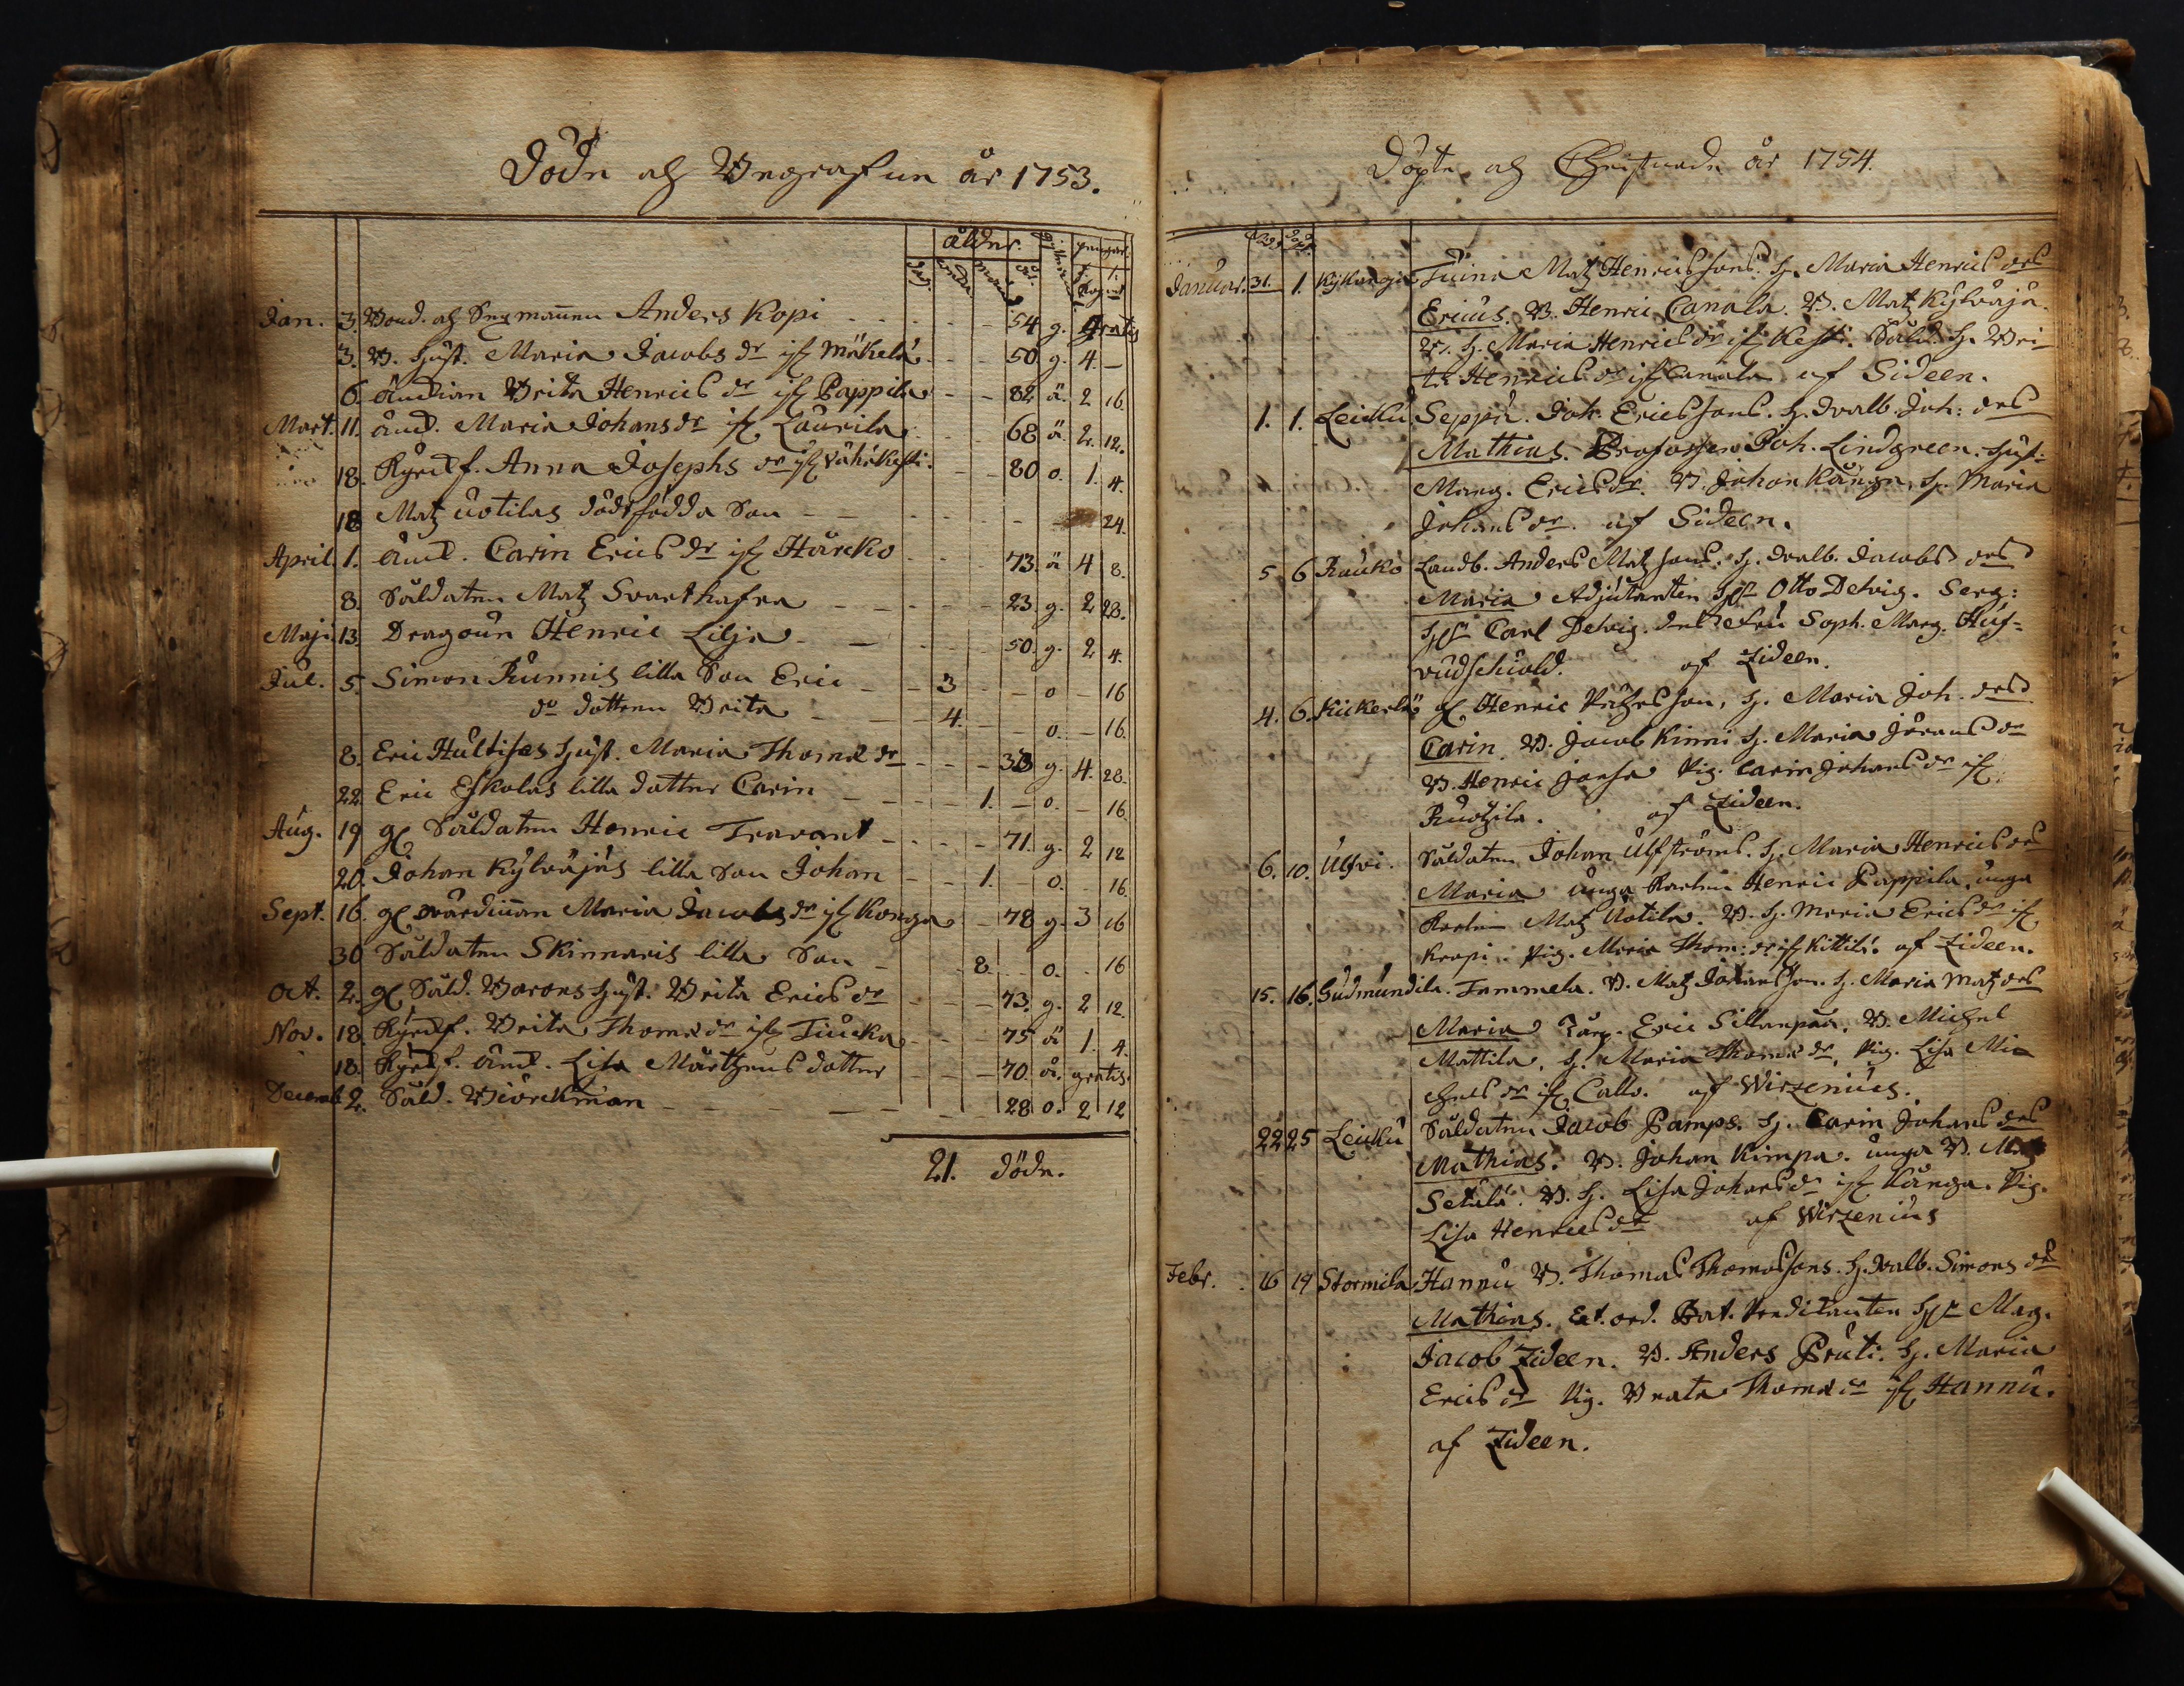 Döde och Begrafne år 1753.
ålder. pengar
dag. måna år.
Jan. 3. Bond. och Sexmannen Anders Kopi 54 g. gratis
3. B. hust. Maria Jacobs dr ifr Mäkelä 50 g. 4 —
6. änckian Brita Henrics dr ifr Pappila 82 ä. 2 16.
Mart. 11. änck. Maria Johans dr ifr Laurila 68 ä. 2. 12.
18. Anna Josephs dr ifr Vähäkesti 80 o. 1. 4.
18 Matz Uotilas dödfödda Son 24.
April. 1. änck. Carin Erics dr ifr Harcko 73. ä 4 8.
8. Soldaten Matz Svarthafra 23. g. 2 28.
Maji 13. Dragoun Henric Lilja 50. g. 2 4.
Jul. 5. Simon Runnis lilla Son Eric 3 o — 16
do dotteren Brita 4. o. — 16.
8. Eric Hultisas hust. Maria Thomæ dr 33 g. 4. 28.
22. Eric Eskolas lilla dotter Carin 1. — o. — 16.
Aug. 19 gl Soldaten Henric Travant 71. g. 2 12
20. Johan Kylväjäs lilla Son Johan 1. o. 16.
Sept. 16. gl värdinnan Maria Jacobs dr ifr Konga 78 g. 3 16
30 Soldaten Skinnaris lilla Son 8. o. 16
Oct. 2. gl Sold. Barons hust. Brita Erics dr 73. g. 2 12.
Nov. 18. Brita Thomæ dr ifr Tiucka 75 ä 1. 4.
18. änck. Lisa Mårthens dotter 70. ä. gratis.
Decemb. 2. Sold. Biörckman 28 o. 2 12
21. döde.
Döpte och Christnade år 1754.
Januar. 31. 1. Kyllangiä Tuina Matz Henrics sons. h. Maria Henrics drs
Ericus. B. Henric Canala. B. Matz Kylväjä.
B. h. Maria Henrics dr ifr Kesti. Sold. h. Bri-
ta Henrics dr ifr Canala af Sideen.
1. 1. Leicku Seppä. Joh. Erics sons. h. Valb. Joh: drs
Mathias. Profossen Joh. Lindgreen. hust:
Marg. Erics dr. B. Johan Känga, h. Maria
Johans dr. af Sideen.
5. 6 Rauko Landb. Anders Matz sons. h. Valb. Jacobs drs
Maria Adjutanten Hr Otto Delvig. Serg:
Hr Carl Delvig. dess fru Soph. Marg. Huf-
vudschiold. af Zideen.
4. 6. Kickerlä gl Henric son, h. Maria Joh. drs
Carin. B. Jacob Kinni h. Maria Jörans dr
B. Henric Jonsa Pig. Carin Johans dr ifr
Ruotzila. af Zideen.
6. 10. Ulfvi. Soldaten Johan Ulfströms. h. Maria Henrics drs
Maria unga Karlen Henric Pappila, unga
Karlen Matz Uotila. B. h. Maria Erics dr ifr
Kropi. Pig. Maria Thom: dr ifr Kittilä. af Zideen.
15. 16. Gudmundila. Tammela. B. Matz Johans son. h. Maria Matz drs
Maria Torp. Eric Sillanpää, B. Michel
Mattila, h. Maria Thomæ dr, Pig. Lisa Mi-
chels dr ifr Callo. af Wirzenius.
22 25 Leicku Soldaten Jacob Pamps. h. Carin Johans drs
Mathias. B. Johan Kimpa. unga B. Matz
Setälä. B. h. Lisa Johans dr ifr Känga. Pig.
Lisa Henrics dr af Wirzenius
Febr. 16 19 Stormila Hannu B. Thomas Thomas sons. h. Valb. Simons dr
Mathias. Ext. ord. Bat. Predikanten Hr Mag.
Jacob Zideen. B. Anders Pruti. h. Maria
Erics dr Pig. Beata Thomæ dr ifr Hannu.
af Zideen.